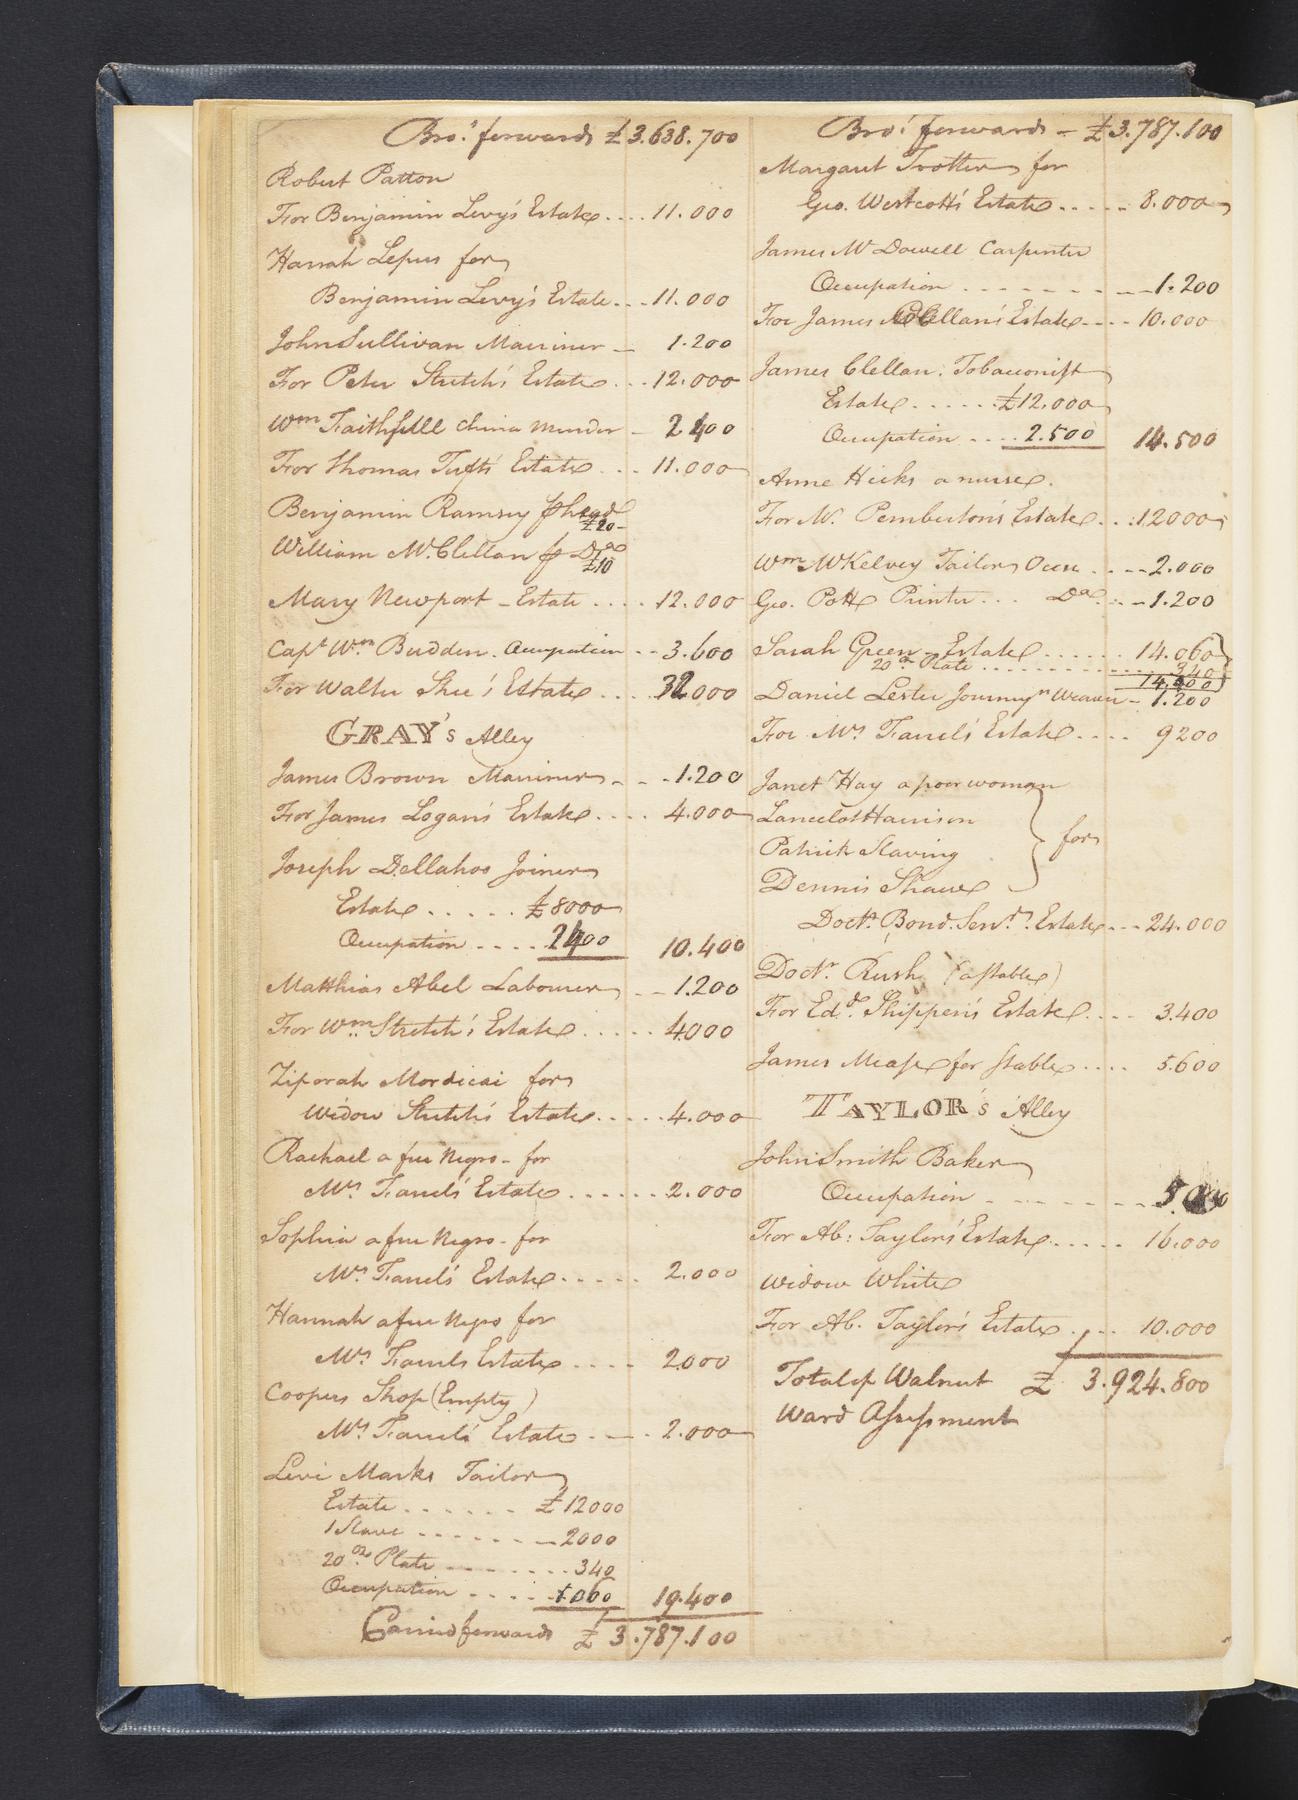 Bro.t forwards £3.638.700
Robert Patton
For Benjamin Levy's Estate .... 11.000
Hanah Lepus for
Benjamin Levy's Estate ... 11.000
John Sullivan Mariner — 1.200
For Peter Stretch's Estate ... 12.000
Wm Faithfull China Mender - 2400
For Thomas Tufts' Estate ... 11.000
Benjamin Ramsey p head
£20-
William McClellan p Do
£10
Mary Newport - Estate .... 12.000
Capt Wm Budden. Occupation -- 3.600
For Walter Shee's Estate .... 32000
GRAY's Alley
James Brown Mariner - - - 1.200
For James Logan's Estate .... 4.000
Joseph Dellahoo Joiner
Estate ..... £8000
Occupation .... 2400 10.400
Matthias Abel Labourer -- 1.200
For Wm Stretch's Estate ..... 4000
Ziporah Mordicai for
Widow Stretch's Estate ..... 4.000
Rachael a free Negro - for
Mrs Estate ...... 2.000
Sophia a free Negro - for
Mrs Estate ..... 2.000
Hannah a free Negro for
Mrs Estate .... 2000
Coopers Shop (Empty)
Mrs Estate ---. 2.000
Levi Marks Tailor
Estate ...... £12000
1 Slave ------ 2000
20 oz. Plate ------- 340
Occupation ..... 19.400
Carried forwards £3.787.100
Bro.t forwards - £3.787.100
Margaret Trotter for
Geo. Westcott's Estate ..... 8.000
James McDowell Carpenter
Occupation -------- 1.200
For James McClellan's Estate ---- 10.000
James Clellan. Tobacconist
Estate ..... £12.000
Occupation .... 2.500 14.500
Anne Hicks a nurse.
For M. Pemberton's Estate ... 12000
Wm McKelvey Tailor Occu ---- 2.000
Geo. Pott Printer ... Do --- 1.200
Sarah Green - Estate ...... 14.060
20 oz Plate ............ 340
14.400
Daniel Lester Journeyn Weaver - 1.200
For Mrs Estate .... 9200
Janet Hay a poor woman
Lancelot Harrison
Patrick Slaving
Dennis Shawe
for
Doctr. Bond. Senr. Estate --- 24.000
Doctr. Rush (a stable)
For Edd. Shippen's Estate .... 3.400
James Mease for stable .... 5.600
TAYLOR's Alley
John Smith Baker
Occupation --------
For Ab: Taylor's Estate ..... 16.000
Widow White
For Ab. Taylor's Estate .... 10.000
Total of Walnut £ 3.924.800
Ward Assessment